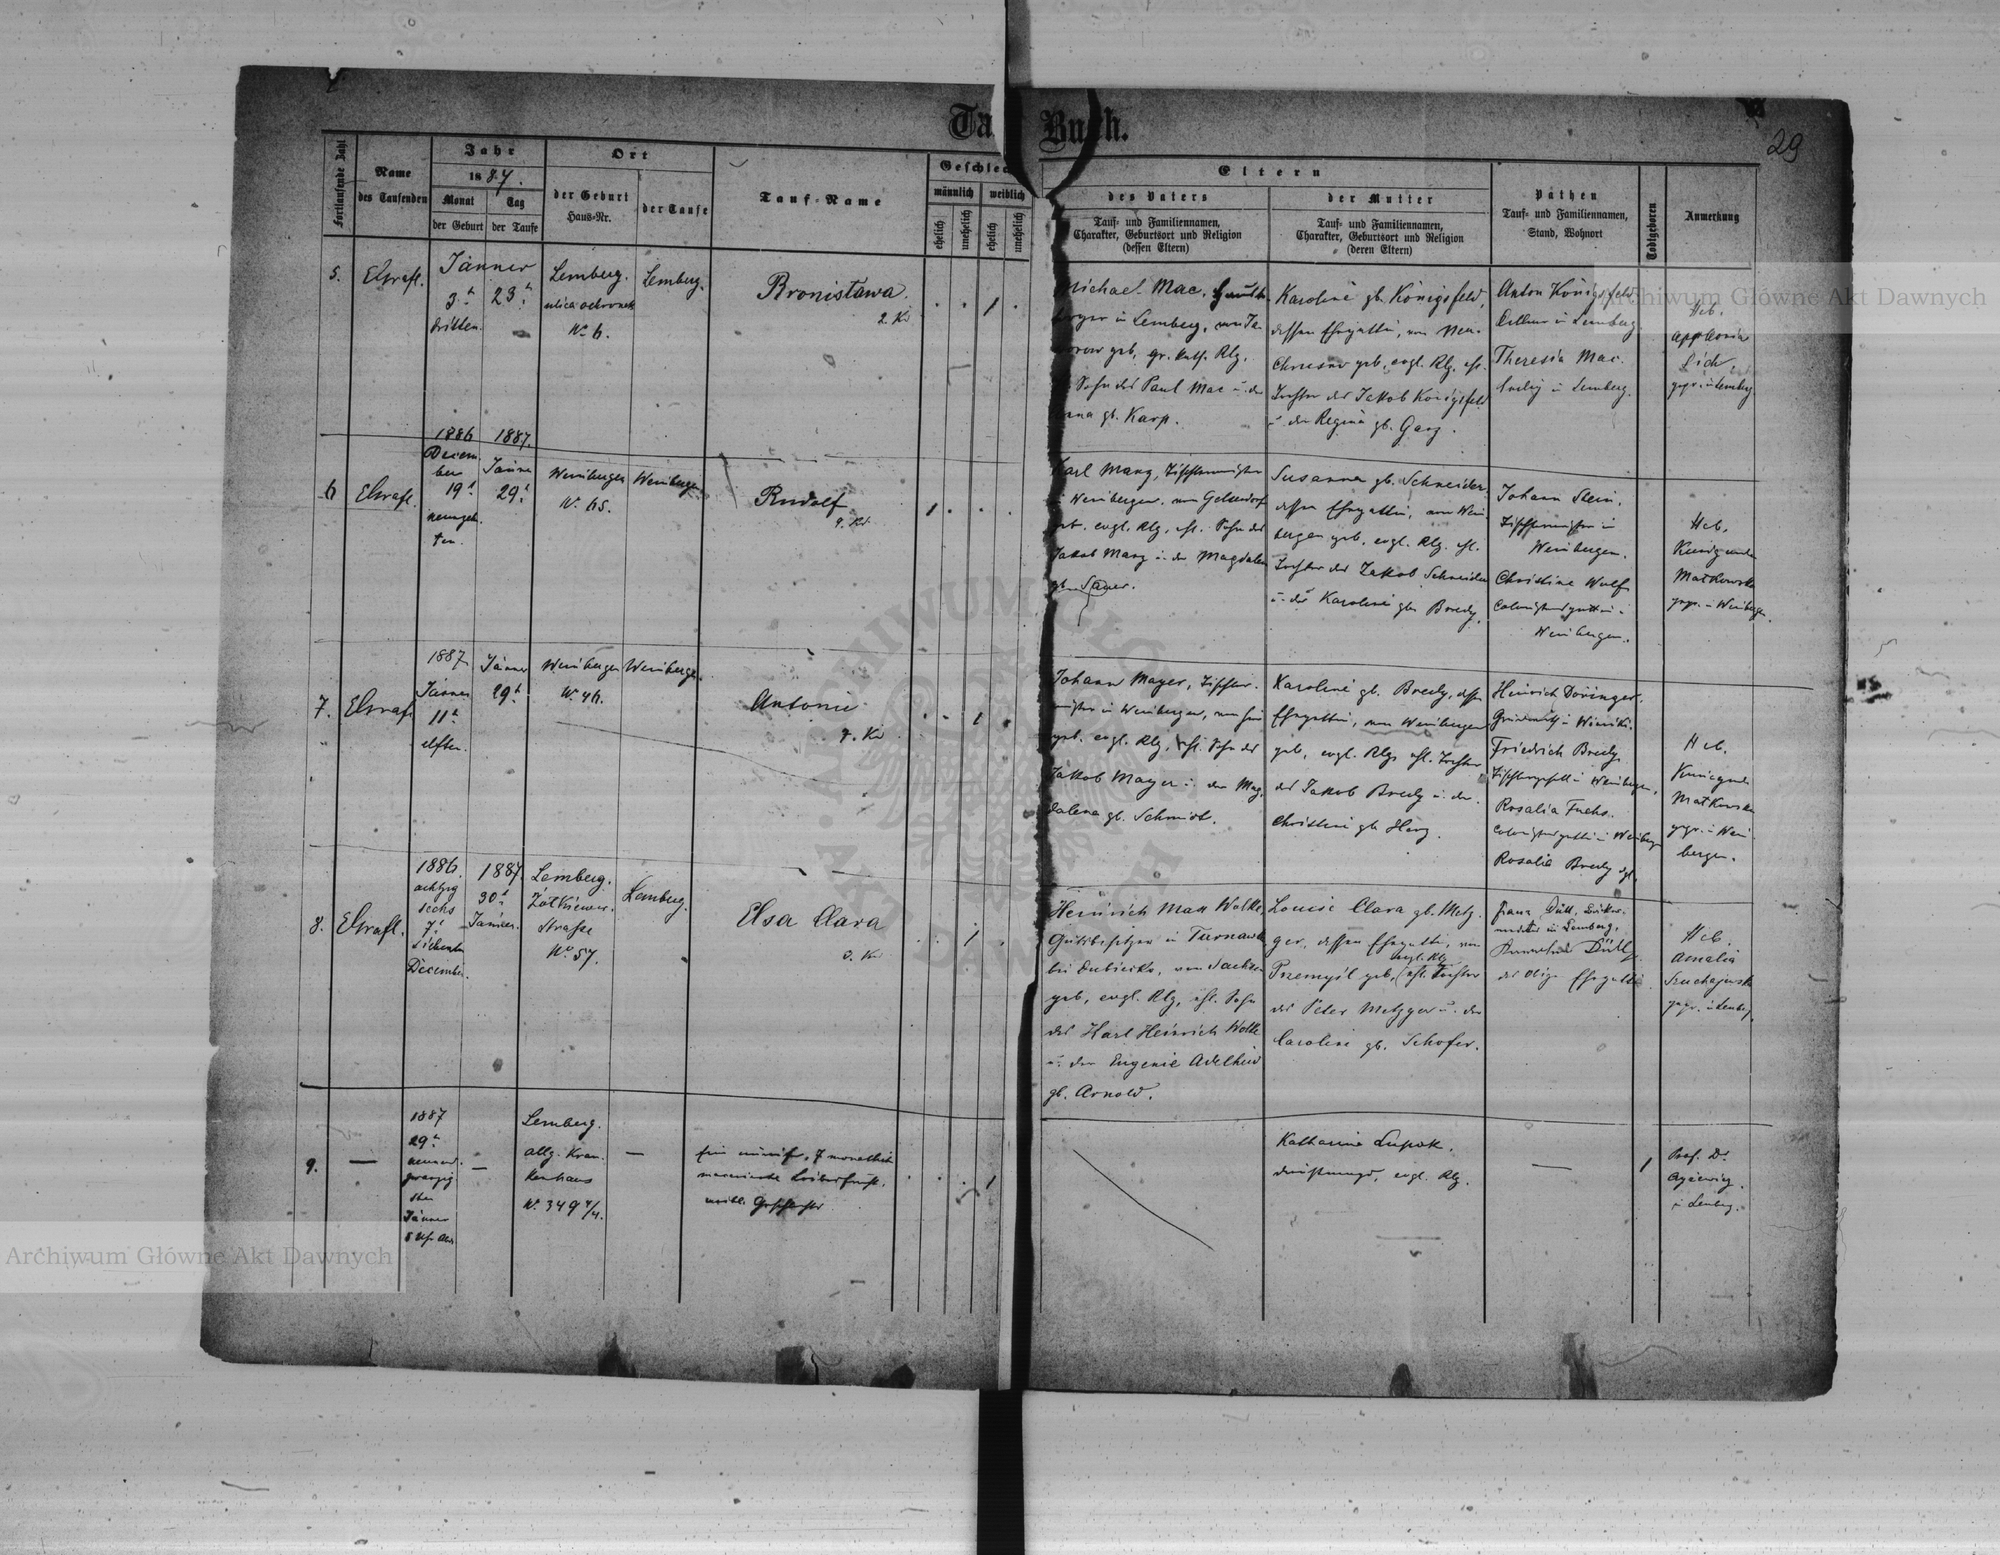 Tauf-Buch.
29
Fortlaufende Zahl
Name
des Taufenden
Jahr
1887.
Monat
der Geburt
Tag
der Taufe
Ort
der Geburt
Haus-Nr.
der Taufe
Tauf-Name
Geschlecht
männlich
weiblich
ehelich
unehelich
ehelich
unehelich
Eltern
des Vaters
Tauf- und Familiennamen,
Charakter, Geburtsort und Religion
(dessen Eltern)
der Mutter
Tauf- und Familiennamen,
Charakter, Geburtsort und Religion
(deren Eltern)
Pathen
Tauf- und Familiennamen,
Stand, Wohnort
Todtgeboren
Anmerkung
5.
Jänner
3t 23t
dritten
Lemberg.
ulica
No 6.
Lemberg.
Bronisława.
2. Kd
1
Michael Mac,
in Lemberg, von
geb, gr. kath. Rlg.
Sohn des Paul Mac u. der
gb. Karp.
Karoline gb. Königsfeld,
dessen Ehegattin, von Neu-
Chrusno geb, evgl. Rlg. ehl.
Tochter des Jakob Königsfeld
u. der Regina gb. Ganz.
Anton Königsfeld
in Lemberg.
Theresia Mac.
ledig in Lemberg.
Heb.
Apolonia
Lich
gepr. in Lemberg
6
1886
Decem-
ber
19t
neunzehn-
ten.
1887.
Jänner
29t
Weinbergen
No 65.
Weinbergen
Rudolf
9. Kd.
1
Karl Manz, Tischlermeister
in Weinbergen, von Gelsendorf
geb. evgl. Rlg, ehl. Sohn des
Jakob Manz u. der Magdalena
gb. Sauer.
Susanna gb. Schneider,
dessen Ehegattin, von Wein-
bergen geb, evgl. Rlg. ehl.
Tochter des Jakob Schneider
u. der Karoline gb. Bredy.
Johann Stein,
Tischlermeister in
Weinbergen.
Christine Wolf
Colonistensgattin in
Weinbergen.
Heb.
Kunigunda
Matkowska
gepr. in Weinbergen.
7.
1887
Jänner
11t
elften.
Jänner
29t
Weinbergen
No 46.
Weinbergen.
Antonie
7. Kd
1
Johann Mayer, Tischler-
meister in Weinbergen, von hier
geb. evgl. Rlg, ehl. Sohn des
Jakob Mayer u. der Mag-
dalena gb. Schmidt.
Karoline gb. Bredy, dessen
Ehegattin, von Weinbergen
geb, evgl. Rlg. ehl. Tochter
des Jakob Bredy u. der
Christine gb. Herz.
Heinrich Doringer.
Grundwirth in Winniki.
Friedrich Bredy
Tischlergesell in Weinbergen,
Rosalia Fuchs.
Colonistensgattin in Weinbergen
Rosalia Bredy
Heb.
Kunigunda
Matkowska
gepr. in Wein-
bergen.
8.
1886.
achtzig
sechs
7t
Siebenten
December.
1887
30t
Jänner.
Lemberg.
Żółkiewer-
Straße
No 57.
Lemberg.
Elsa Clara
3. Kd
1
Heinrich Max Wolke,
Gutsbesitzer in Tarnawka
bei Dubiecko, von Sachsen
geb, evgl. Rlg, ehl. Sohn
des Karl Heinrich Wolke
u. der Eugenie Adelheid
gb. Arnold.
Louise Clara gb. Metz-
ger, dessen Ehegattin, von
evgl. Rlg
Przemyśl geb, ehl. Tochter
des Peter Metzger u. der
Caroline gb. Schofer.
Franz Düll,
in Lemberg.
Düll
des Obigen Ehegattin
Heb.
Amalia
gepr. in Lemberg.
9.
—
1887
29t
neunund-
zwanzig
sten
Jänner
—
Lemberg.
allg. Kran-
kenhaus
No 349 4/4.
—
Ein unreife, 7 monatliche
macerirte Leibesfrucht,
weibl. Geschlechts
1
Katharina Łupak,
Dienstmagd, evgl. Rlg.
—
1
Prof. Dr
in Lemberg.
Archiwum Główne Akt Dawnych
Archiwum Główne Akt Dawnych